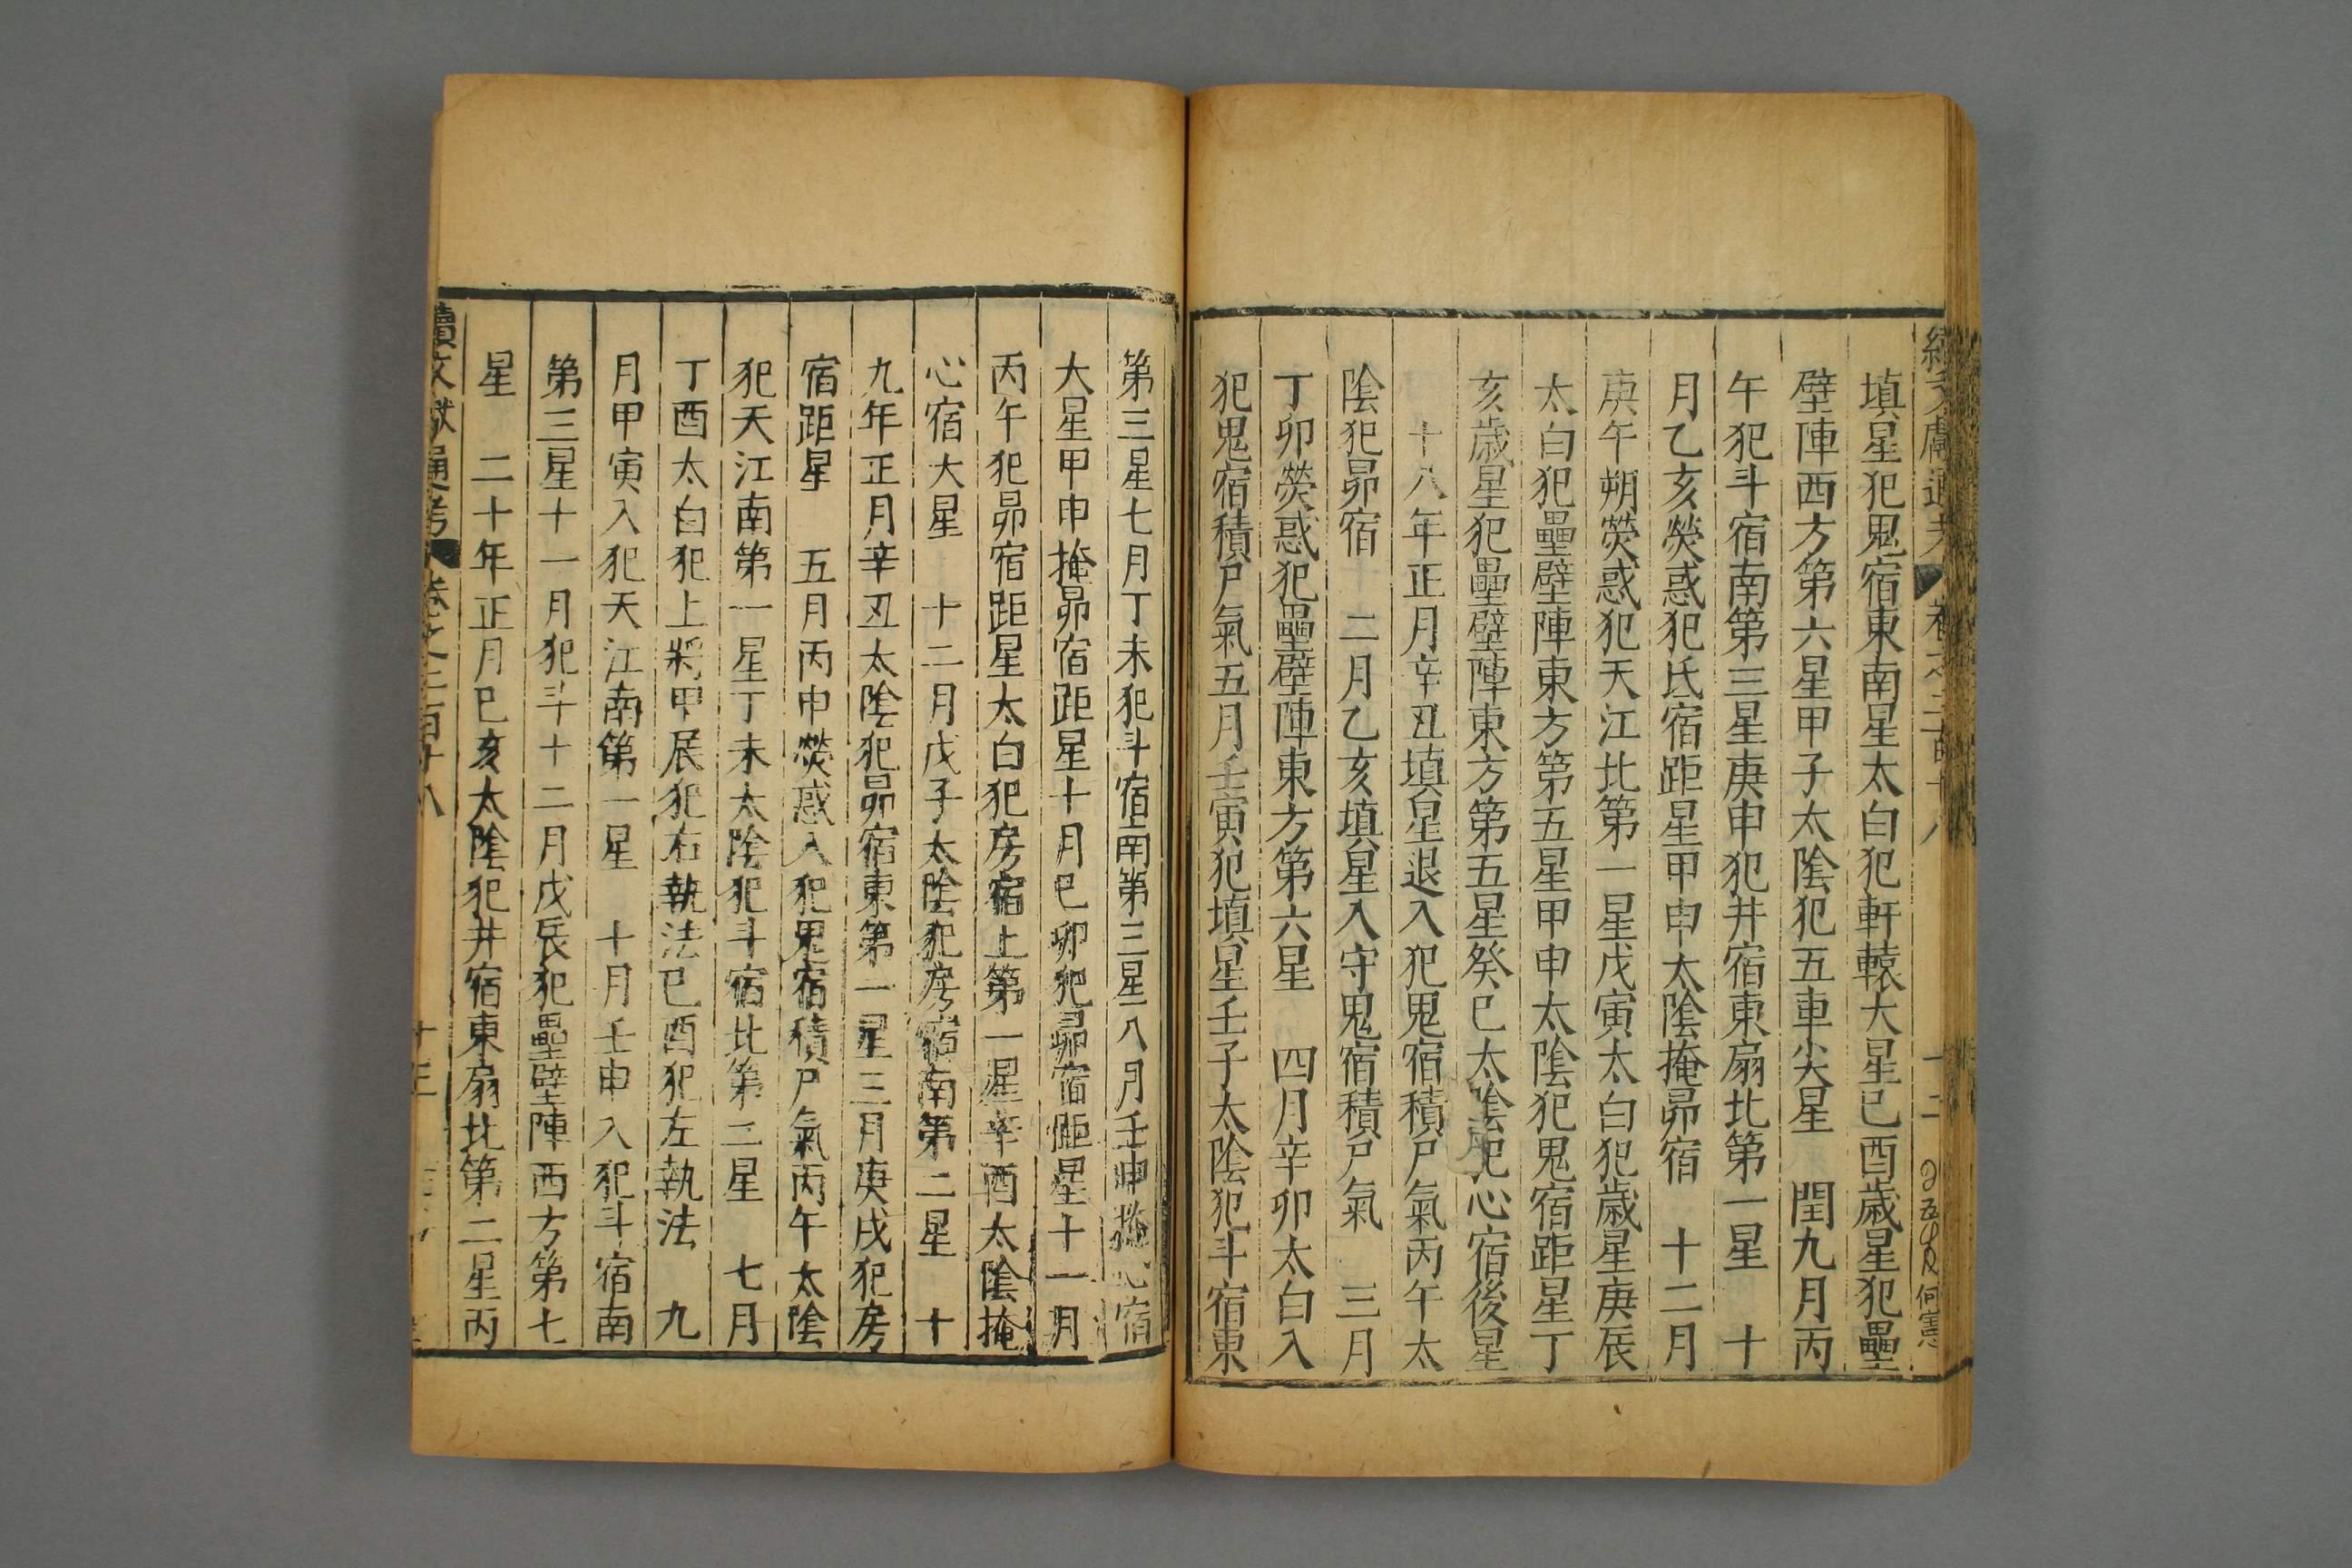 填星犯鬼宿東南星太白犯軒轅大星已酉歲星犯壘
壁陣西方第六星甲子太陰犯五車尖星 閏九月丙
午犯斗宿南第三星庚申犯井宿東扇北第一星 十
月乙亥熒惑犯氐宿距星甲申太陰掩昴宿 十二月
庚午朔熒惑犯天江北第一星戊寅太白犯歲星庚辰
太白犯壘壁陣東方第五星甲申太陰犯鬼宿距星丁
亥歲星犯壘壁陣東方第五星癸巳太陰犯心宿後星
十八年正月辛丑填星退入犯鬼宿積尸氣丙午太
陰犯昴宿 二月乙亥填星入守鬼宿積尸氣 三月
丁卯熒惑犯壘壁陣東方第六星 四月辛卯太白入
犯鬼宿積尸氣五月壬寅犯填星壬子太陰犯斗宿東
第三星七月丁未犯斗宿南第三星八月壬申掩心宿
大星甲申掩昴宿距星十月已卯犯昴宿距星十一月
丙午犯昴宿距星太白犯房宿上第一星辛酉太陰掩
心宿大星 十二月戊子太陰犯房宿南第二星 十
九年正月辛丑太陰犯昴宿東第一星三月庚戌犯房
宿距星 五月丙申熒惑入犯鬼宿積尸氣丙午太陰
犯天江南第一星丁未太陰犯斗宿北第二星 七月
丁酉太白犯上將甲辰犯右執法已酉犯左執法 九
月甲寅入犯天江南第一星 十月壬申入犯斗宿南
第三星十一月犯斗十二月戊辰犯壘壁陣西方第七
星 二十年正月已亥太陰犯井宿東扇北第二星丙
續文獻通考 卷之二百十八